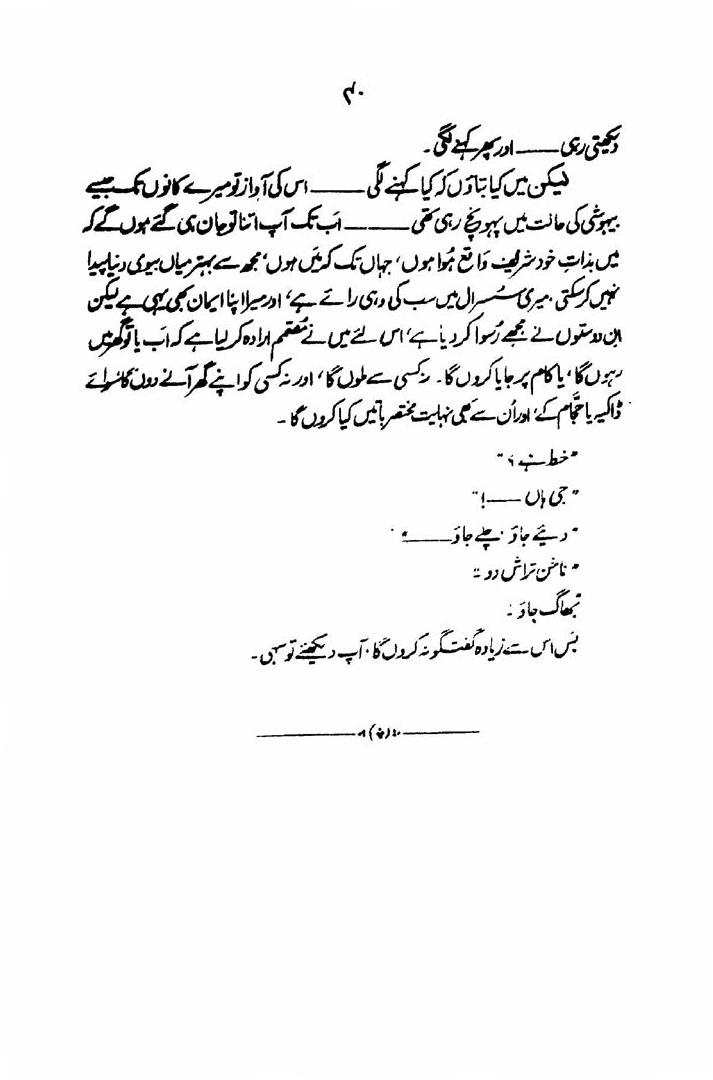 ۴۰
دیکھتی رہی ——— اور پھر کہنے لگی۔
لیکن میں کیا بتاؤں کہ کیا کہنے لگی ——— اس کی آواز تو میرے کانوں تک جیسے
بیہوشی کی حالت میں پہونچ رہی تھی ——— اب تک آپ اتنا تو جان ہی گئے ہوں گے کہ
میں بذاتِ خود شریف واقع ہُوا ہوں، جہاں تک کہ مَیں ہوں، مجھ سے بہتر میاں بیوی دنیا پیدا
نہیں کر سکتی، میری سسرال میں سب کی وہی رائے ہے، اور میرا اپنا ایمان بھی یہی ہے لیکن
اِن دوستوں نے مجھے رُسوا کر دیا ہے، اس لئے میں نے مُصمّم ارادہ کر لیا ہے کہ اب یا تو گھر میں
رہوں گا، یا کام پر جایا کروں گا۔ نہ کسی سے ملوں گا، اور نہ کسی کو اپنے گھر آنے دوں گا سوائے
ڈاکیہ یا حجّام کے، اور اُن سے بھی نہایت مختصر باتیں کیا کروں گا۔
"خط ہے؟"
"جی ہاں ———!"
"دیئے جاؤ، چلے جاؤ ———"
"ناخن تراش دو"
بھاگ جاؤ۔
بس اس سے زیادہ گفتگو نہ کروں گا، آپ دیکھئے تو سہی۔